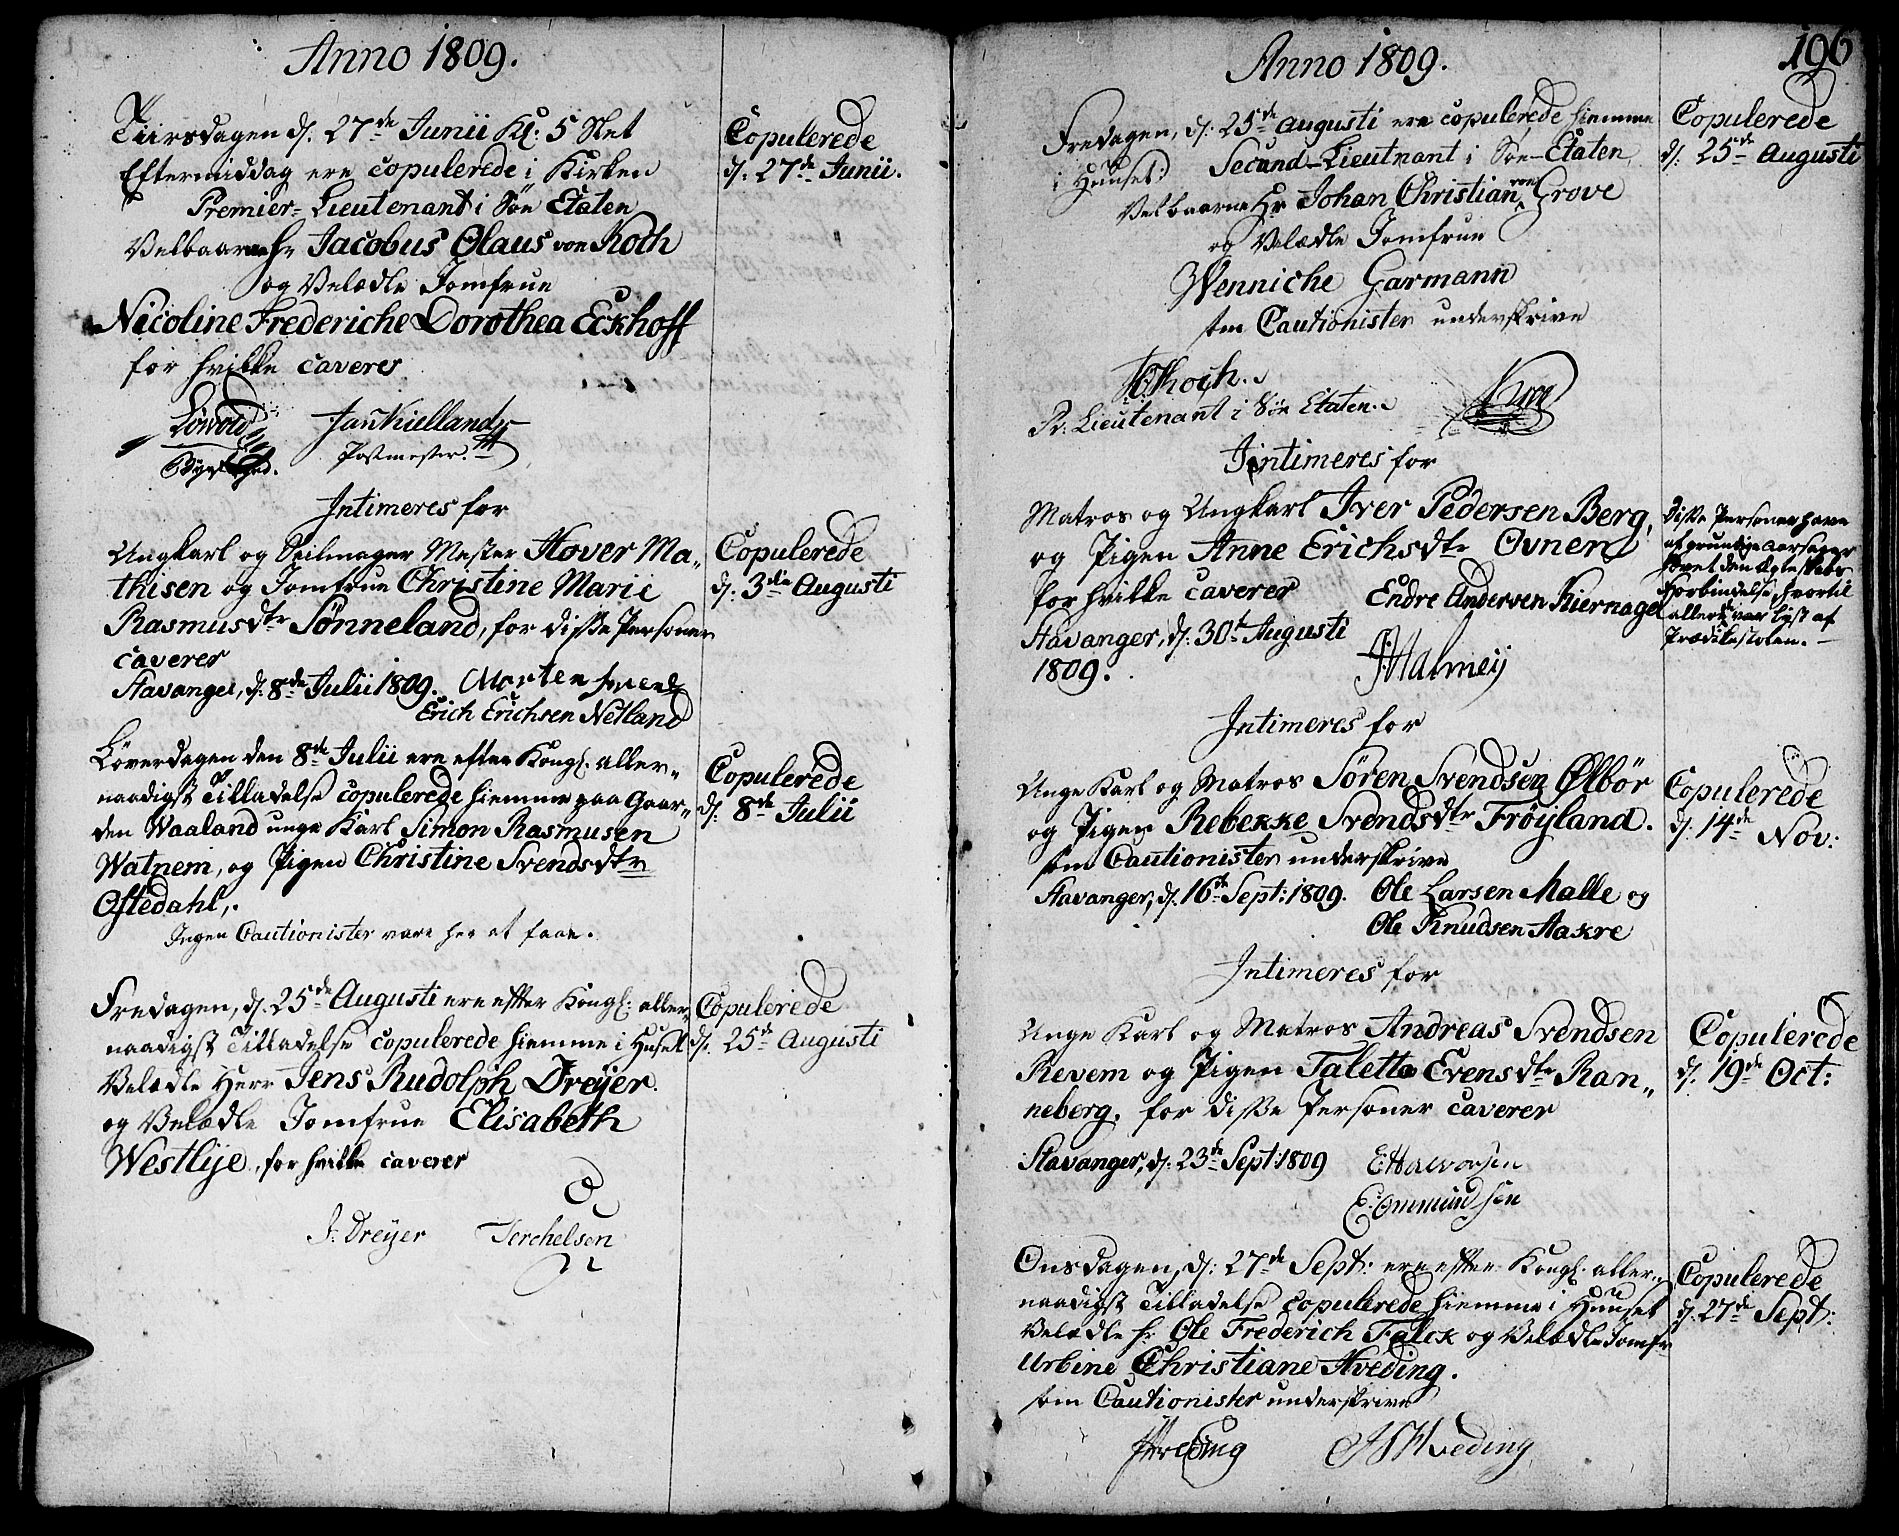 Anno 1809.
Tiirsdagen d. 27de Junii Kl. 5 Slet
Eftermiddag ere copulerede i Kirken
Premier-Lieutenant i Søe Etaten
Velbaarne Hr Jacobus Olaus von Koch
og Velædle Jomfrue
Nicoline Frederiche Dorothea Eckhoff
for hvilke caveres
Løwold Jan Kielland
Postmester.
Copulerede
d. 27de Junii.
Intimeres for
Ungkarl og Seilmager Mester Hover Ma-
thisen og Jomfrue Christine Marie
Rasmusdtr Sønneland, for disse Personer
caverer
Stavanger, d. 8de Julii 1809. Morten
Erich Erichsen Netland
Copulerede
d. 3die Augusti
Løverdagen den 8de Julii ere efter Kongl. aller-
naadigst Tilladelse copulerede hiemme paa Gaar-
den Waaland unge Karl Simon Rasmusen
Watnem, og Pigen Christine Svendsdtr
Oftedahl,.
Ingen Cautionister vare her at faae.
Copulerede
d. 8de Julii
Fredagen, d. 25de Augusti ere efter Kongl. aller-
naadigst Tilladelse copulerede hiemme i Huset
Velædle Herr Jens Rudolph Dreyer
og Velædle Jomfrue Elisabeth
Westlye, for hvilke caverer
J. Dreyer Terchelsen
Copulerede
d. 25de Augusti
196
Anno 1809.
Fredagen, d. 25de Augusti ere copulerede hiemme
i Huuset: Secund-Lieutnant i Søe-Etaten
Velbaarne Hr Johan Christian von Grove
og Velædle Jomfrue
Wenniche Garmann
som Cautionister underskrive
Koch.
Pr. Lieutenant i Søe Etaten.
Copulerede
d. 25de Augusti
Intimeres for
Matros og Ungkarl Iver Pedersen Berg,
og Pigen Anne Erichsdtr Ovnen
for hvilke caverer Endre Andersen Kiernagel
Stavanger, d. 30t Augusti
1809.
Disse Personer have
af grundige Aarsager
hævet den Egteskabs
Forbindelse, hvortil
allerede var lyst af
Prædikestolen.
Intimeres for
Unge Karl og Matros Søren Svendsen Ølbør
og Pigen Rebekke Svendsdtr Frøyland.
som Cautionister underskrive
Stavanger, d. 16de Sept: 1809. Ole Larsen Malle og
Ole Knudsen Aakre
Copulerede
d. 14de Nov:
Intimeres for
Unge Karl og Matros Andreas Svendsen
Revem og Pigen Taletta Evensdtr Ran-
neberg, for disse Personer caverer
Stavanger, d. 23de Sept: 1809 E Halvorsen
E: Ommundsen
Copulerede
d. 19de Oct:
Onsdagen, d: 27de Sept: ere efter Kongl. aller-
naadigst Tilladelse copulerede hiemme i Huuset
Velædle Hr Ole Frederich Falck og Velædle Jomfr
Urbine Christiane Hveding.
som Cautionister underskrive
Hveding Hveding
Copulerede
d. 27de Sept: